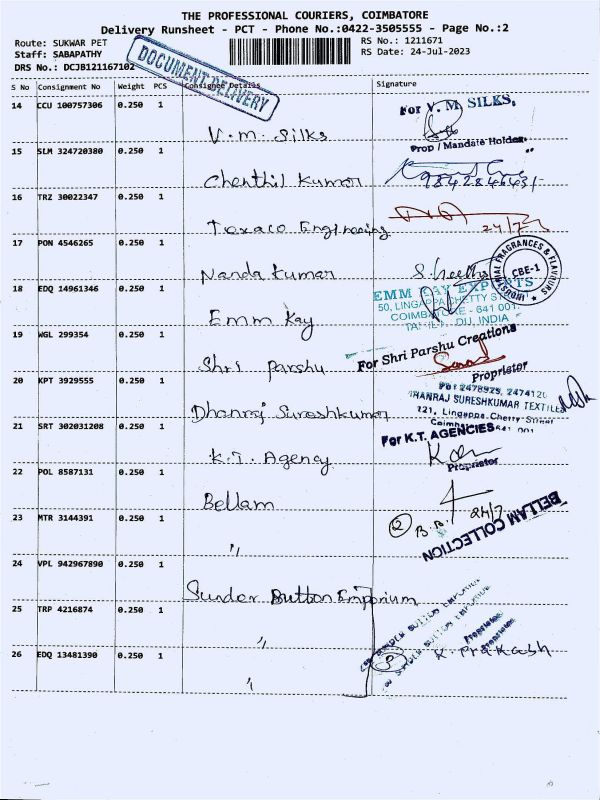 THE PROFESSIONAL COURIERS, COIMBATORE
Delivery Runsheet - PCT - Phone No.:0422-3505555 - Page No.:2
Route: SUKWAR PET
Staff: SABAPATHY
DRS No.: DCJB121167102
RS No.: 1211671
RS Date: 24-Jul-2023
DOCUMENT DELIVERY
S No Consignment No Weight PCS Consignee Details Signature
14 CCU 100757306 0.250 1
V.M. Silks
For V. M. SILKS,
Prop / Mandate Holder
15 SLM 324720380 0.250 1
Chenthil Kumar
16 TRZ 30022347 0.250 1
Texaco Engineering
24/7
17 PON 4546265 0.250 1
Nanda Kumar
INDUSTRIAL FRAGRANCES & FLAVOURS
CBE-1
18 EDQ 14961346 0.250 1
Emm Kay
EMM KAY EXPORTS
50, LINGAPPA CHETTY STREET
COIMBATORE - 641 001.
INDIA
19 WGL 299354 0.250 1
Shri Parshu
For Shri Parshu Creations
Proprietor
20 KPT 3929555 0.250 1
Dhanraj Sureshkumar
DHANRAJ SURESHKUMAR TEXTILES
721, Lingappa Chetty Street
21 SRT 302031208 0.250 1
K.T. Agency
For K.T. AGENCIES
Proprietor
22 POL 8587131 0.250 1
Bellam
2 B.B. 24/7
BELLAM COLLECTION
23 MTR 3144391 0.250 1
"
24 VPL 942967890 0.250 1
Sundar Button Emporium
25 TRP 4216874 0.250 1
"
Proprietor
26 EDQ 13481390 0.250 1
"
3 K. Prakash